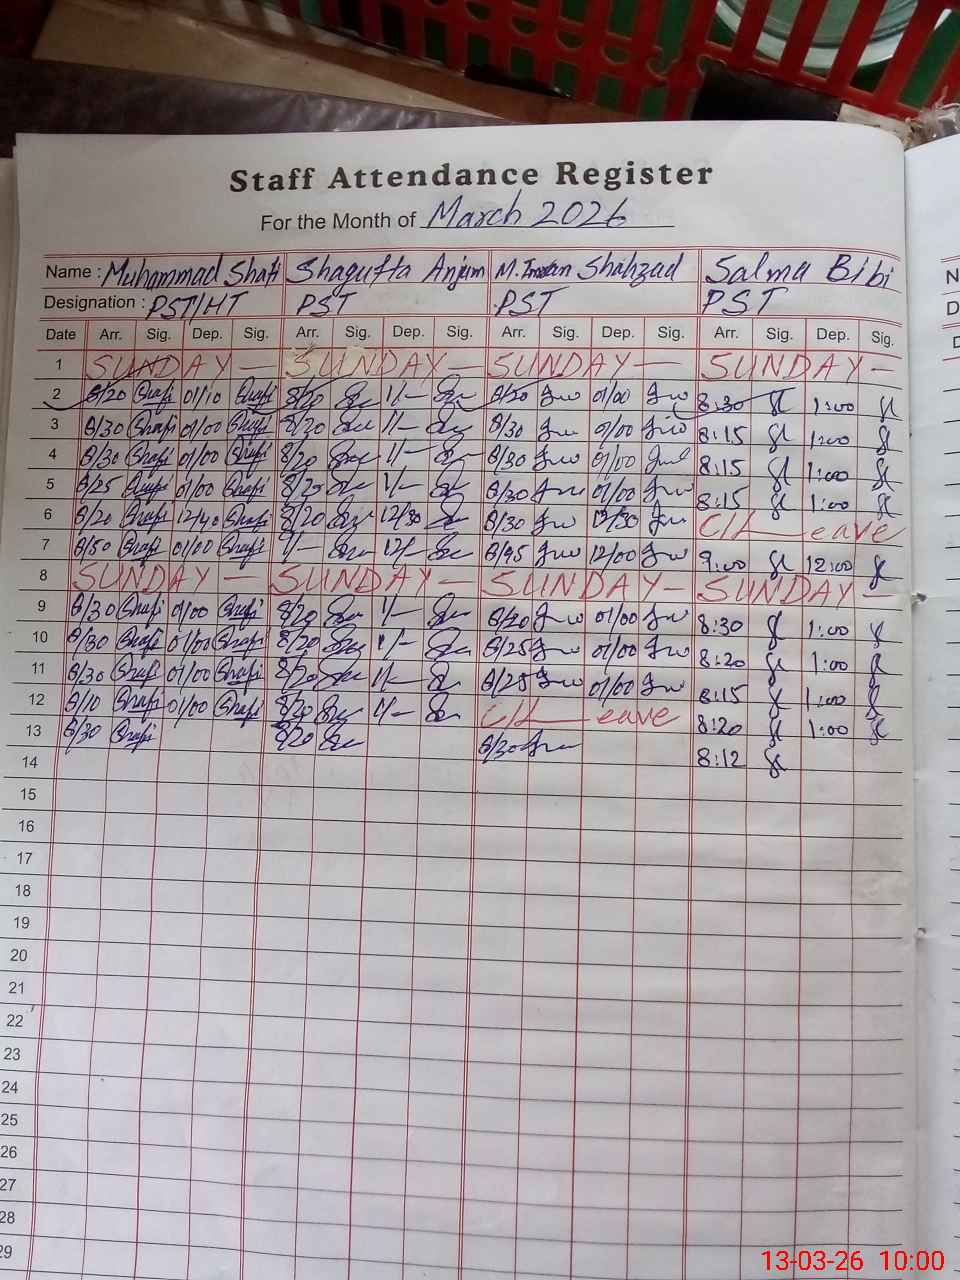 Staff Attendance Register
For the Month of March 2026
Name : Muhammad Shafi Shagufta Anjum M. Imran Shahzad Salma Bibi
Designation : PST/HT PST PST PST
Date Arr. Sig. Dep. Sig. Arr. Sig. Dep. Sig. Arr. Sig. Dep. Sig. Arr. Sig. Dep. Sig.
1 SUNDAY — SUNDAY — SUNDAY — SUNDAY —
2 8/20 Shafi 01/10 Shafi 8/20 1/— 8/20 01/00 8:30 1:00
3 8/30 Shafi 01/00 Shafi 8/20 1/— 8/30 01/00 8:15 1:00
4 8/30 Shafi 01/00 Shafi 8/20 1/— 8/30 01/00 8:15 1:00
5 8/25 Shafi 01/00 Shafi 8/25 1/— 8/30 01/00 8:15 1:00
6 8/20 Shafi 12/40 Shafi 8/20 12/30 8/30 12/30 C/Leave
7 8/50 Shafi 01/00 Shafi 9/— 12/— 8/45 12/00 9:00 12:00
8 SUNDAY — SUNDAY — SUNDAY — SUNDAY —
9 8/30 Shafi 01/00 Shafi 8/20 1/— 8/20 01/00 8:30 1:00
10 8/30 Shafi 01/00 Shafi 8/20 1/— 8/25 01/00 8:20 1:00
11 8/30 Shafi 01/00 Shafi 8/20 1/— 8/25 01/00 8:15 1:00
12 8/10 Shafi 01/00 Shafi 8/20 1/— C/Leave 8:20 1:00
13 8/30 Shafi 8/20 8/30 8:12
14
15
16
17
18
19
20
21
22
23
24
25
26
27
28
29
13-03-26 10:00